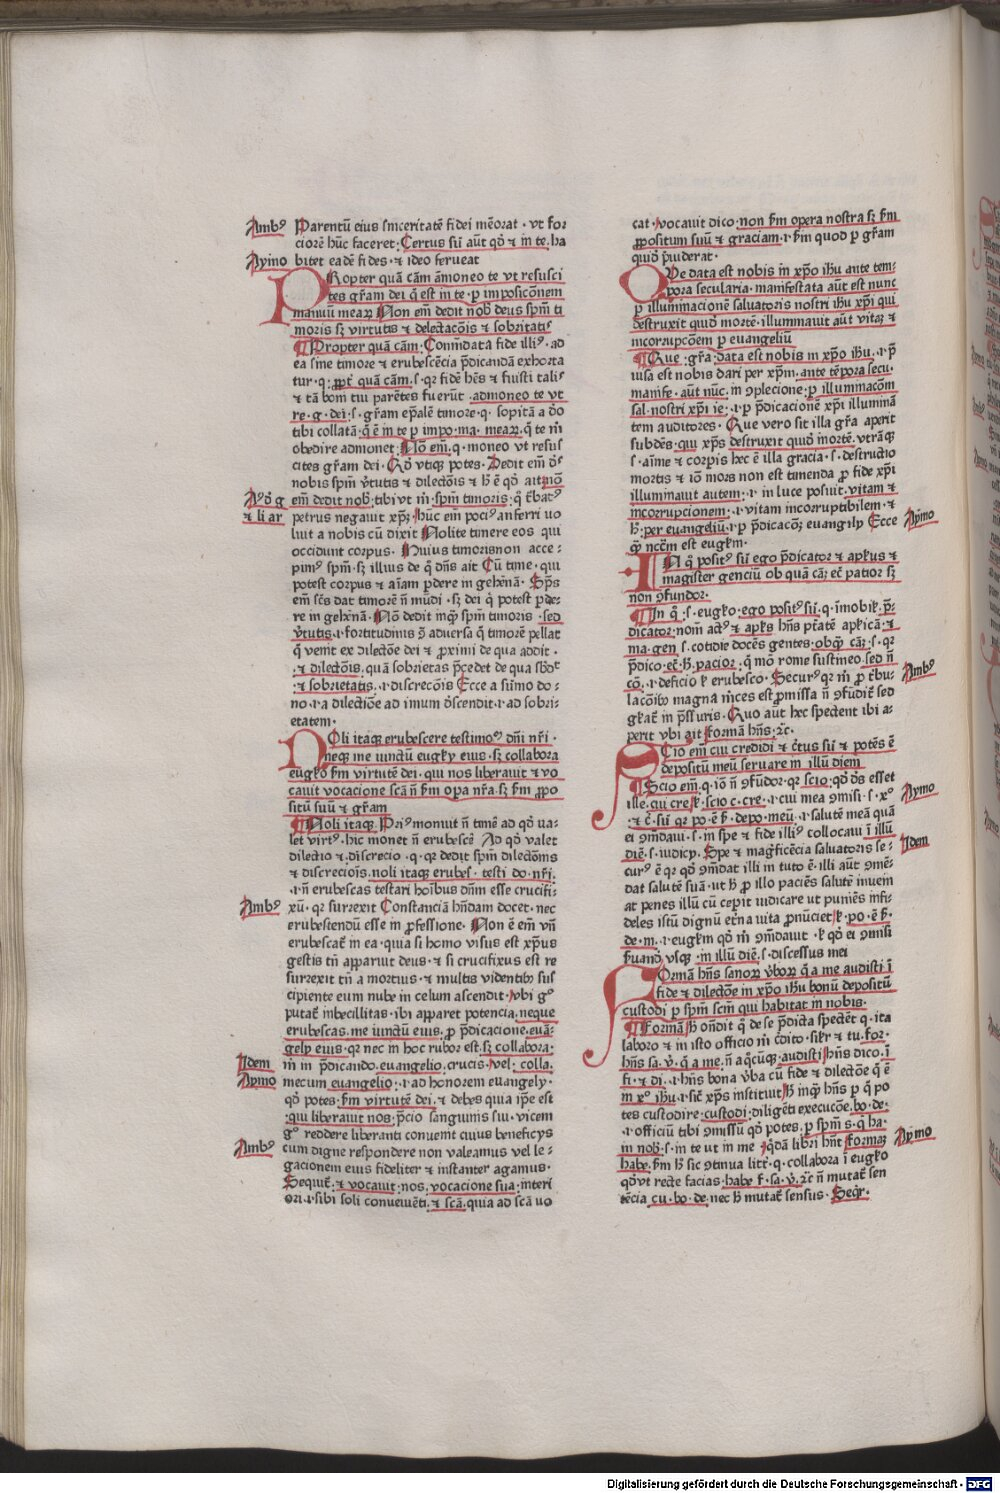 Ambꝰ
Parentū eius sinceritatē fidei mēorat · vt for
ciorē hūc faceret · Certus sū aūt qð ⁊ in te · ha
Aymo
bitet eadē fides · ⁊ ideo ferueat
PRopter quā cām āmoneo te vt resusci
tes gr̄am dei q̄ est in te · p imposicōnem
manuū mearꝝ Non em̄ dedit nob̄ deus spm̄ ti
moris sꝫ virtutis ⁊ delectacōis ⁊ sobritatꝭ
¶Propter quā cām · Com̄data fide illiꝰ · ad
ea sine timore ⁊ erubescēcia p̄dicandā exhorta
tur · q · ꝓpt̄ quā cām · s · qꝛ fidē hēs ⁊ fuisti talis
⁊ tā boni tui parētes fuerūt · admoneo te vt
re · g · dei · s · gr̄am ep̄alē timore · q · sopitā a do
tibi collatā · q̄ ē in te p impo · ma · mearꝝ · q̄ te m̄
obedire admonet · Nō em̄ · q · moneo vt resus
cites gr̄am dei · Qð vtiqꝫ potes · Dedit em̄ ds̄
nobis spm̄ v̄tutis ⁊ dilectōis ⁊ h̄ ē qð ait nō
em̄ dedit nob̄ · tibi vt m̄ · spm̄ timoris · q̄ t̄batꝰ
⁊ li ar
petrus negauit xp̄ꝫ · hūc em̄ pociꝰ anferri uo
luit a nobis cū dixit Nolite timere eos qui
occidunt corpus · Huius timorisnon acce-
pimꝰ spm̄ · sꝫ illius de q̄ dn̄s ait Cū time · qui
potest corpus ⁊ aīam p̄dere in gehēnā · Sp̄s
em̄ scs̄ dat timorē n̄ mūdi · sꝫ dei q̄ potest p̄de-
re in gehēnā · Nō dedit inqꝫ spm̄ timoris · sed
v̄tutis · i fortitudinis 9̄ aduersa q̄ timorē pellat
q̄ venit ex dilectōe dei ⁊ ꝓximi de qua addit ·
· ⁊ dilectōis · quā sobrietas p̄cedet de qua sb̄dt̄
· ⁊ sobrietatis · i discrecōis Ecce a sūmo do-
no · i a dilectiōe ad imum d̄scendit · i ad sobri-
etatem ·
NOli itaqꝫ erubescere testimoꝰ dn̄i nr̄i ·
neqꝫ me iunctū eugky eius · sꝫ collabora
eugko ẜm virtutē dei · qui nos liberauit ⁊ vo
cauit vocacione scā n̄ ẜm opa nr̄a · sꝫ ẜm ꝓpo
sitū suū ⁊ gr̄am
¶Noli itaqꝫ · Priꝰ monuit n̄ timē ad qð va-
let virtꝰ · hic monet n̄ erubescē Ad qð valet
dilectio ⁊ discrecio · q · qꝛ dedit spm̄ dilectōnis
⁊ discrecioīs · noli itaqꝫ erubes · testi do · nr̄i ·
· i n̄ erubescas testari hoībus dn̄m esse crucifi-
Ambꝰ
xū · qꝛ surrexit Constanciā hn̄dam docet · nec
erubestendū esse in ꝓfessione · Non ē em̄ vn̄
erubescat̄ in ea · quia si homo visus est xp̄us
gestis tn̄ apparuit deus · ⁊ si crucifixus est re
surrexit tn̄ a mortius · ⁊ multis videntib sus
cipiente eum nube in celum ascendit · vbi gꝰ
putat̄ inbecillitas · ibi apparet potencia · neque
erubescas · me iunctū eius · ꝓ p̄dicacione · euā-
gelij eius · qꝛ nec in hoc rubor est · sꝫ collabora ·
Idem
m̄ in p̄dicando · euangelio · crucis · vel · colla ·
Aymo
mecum euangelio · i ad honorem euangely ·
qð potes · ẜm virtutē dei · ⁊ debes quia ip̄e est
· qui liberauit nos · p̄cio sanguinis sui · vicem
gꝰ reddere liberanti conuenit cuius beneficys
Ambꝰ
cum digne respondere non valeamus vel le-
gacionem eius fideliter ⁊ instanter agamus ·
Sequit̄ · ⁊ vocauit · nos · vocacione sua · interi
ori · i sibi soli conueniēti · ⁊ scā · quia ad scā uo
cat · vocauit dico · non ẜm opera nostra sꝫ ẜm
ꝓpositum suū ⁊ graciam · i ẜm quod p gr̄am
quiꝰ p̄uiderat ·
QUe data est nobis in xp̄o ihu ante tem-
pora secularia · manifestata aūt est nunc
p illuminacionē saluatoris nostri ihu xp̄i qui
destruxit quidꝫ mortē · illuminauit aūt vitaꝫ ⁊
incorrupcōem p euangeliū
¶Que · gr̄a · data est nobis in xp̄o ihu · i p̄
uisa est nobis dari per xp̄m · ante tēpora secu ·
manife · aūt nūc · in 9plecione · p illuminacōm
sal · nostri xp̄i ie · i p p̄dicacionē xp̄i illuminā
tem auditores · Que vero sit illa gr̄a aperit
subdēs · qui xp̄s destruxit quidꝫ mortē · vtrāqꝫ
· s · aīme ⁊ corpis hec ē illa gracia · s · destructio
mortis ⁊ iō mors non est timenda ꝓ fide xp̄i
illuminauit autem · i in luce posuit · vitam ⁊
incorrupcionem · i vitam incorruptibilem · ⁊
h̄ · per euangeliū · i p p̄dicacōꝫ euangily Ecce
Aymo
qꝫ nccm̄ est eugkm ·
IN q̄ positꝰ sū ego p̄dicator ⁊ apk̄us ⁊
magister genciū ob quā cāꝫ ec̄ patior sꝫ
non 9fundor ·
¶In q̄ · s · eugko · ego positꝰ sū · q · īmobik · p̄-
dicator · noīn actꝰ ⁊ apks hn̄s p̄tatē apkicā · ⁊
ma · gen · s · cotidie docēs gentes · obqꝫ cāꝫ · s · qꝛ
p̄dico · ec̄ · h̄ · pacior · q̄ mō rome sustineo · sed n̄
Ambꝰ
cō · i deficio k erubesco · Securꝰ qꝛ m̄ ꝓ t̄bu-
lacōib magna m̄ces est ꝓmissa n̄ 9fūdit̄ sed
gkat̄ in p̄ssuris · Quo aūt hec spectent ibi a-
perit vbi ait formā hn̄s · ꝛc̄ ·
SCio em̄ cui credidi ⁊ c̄tus sū ⁊ potēs ē
depositū meū seruare in illū diem
¶Scio em̄ · q · iō n̄ 9fūdor · qꝛ scio · qð ds̄ esset
Aymo
ille · cui cre k · scio c · cre · i cui mea 9misi · s · xꝰ
· ⁊ c̄ · sū qꝛ po · ē ẜ · depo · meū · i salutē meā quā
ei 9mdaui · s · in spe ⁊ fide illiꝰ collocaui ī illū
Idem
diē · s · iudicij · Spe ⁊ mag̃ficēcia saluatoris se-
curꝰ ē qꝛ qð 9mdat illi in tuto ē · illi aūt 9mē-
dat salutē suā · ut h̄ ꝓ illo paciēs salutē inueiat
at penes illū cū ceꝑit iudicare ut puniēs infi-
deles istū dignū etn̄a uita pn̄uciet k · po · ē ẜ ·
de · m · i eugkm qð m̄ 9mdauit · k qð ei 9misi
ẜuandꝫ vsqꝫ · in illū diē · s · discessus mei
FOrmā hn̄s sanorꝝ v̄borꝝ q̄ a me audisti ī
fide ⁊ dilectōe in xp̄o ihu bonū depositū
custodi p spm̄ scm̄ qui habitat in nobis ·
¶Formā h̄ on̄dit q̄ de se p̄dicta spectēt q · ita
laboro ⁊ in isto officio m̄ c̄dito · sikr ⁊ tu · for ·
hn̄s sa · v̄ · q̄ a me · n̄ a q̄cūqꝫ · audisti hn̄s dico · ī
fi · ⁊ di · i hn̄s bona v̄ba cū fide ⁊ dilectōe q̄ ē
in xꝰ ihu · i sic̄ xp̄s instituit h̄ inqꝫ hn̄s p q̄ po
tes custodire · custodi · diligēti execucōe · bo · de ·
· i officiū tibi 9missū qð potes · p spm̄ s · q̄ ha ·
Aymo
in nob · s · in te ut in me qdā libri hn̄t formaꝫ
habe · ẜm h̄ sic 9tinua litr̄ · q · collabora ī eugko
qðvt recte facias · habe f · sa · v̄ · ꝛc̄ n̄ mutat̄ sen
tēcia · cu · bo · de · nec h̄ mutat̄ sensus · Seqr̄ ·
Digitalisierung gefördert durch die Deutsche Forschungsgemeinschaft · DFG